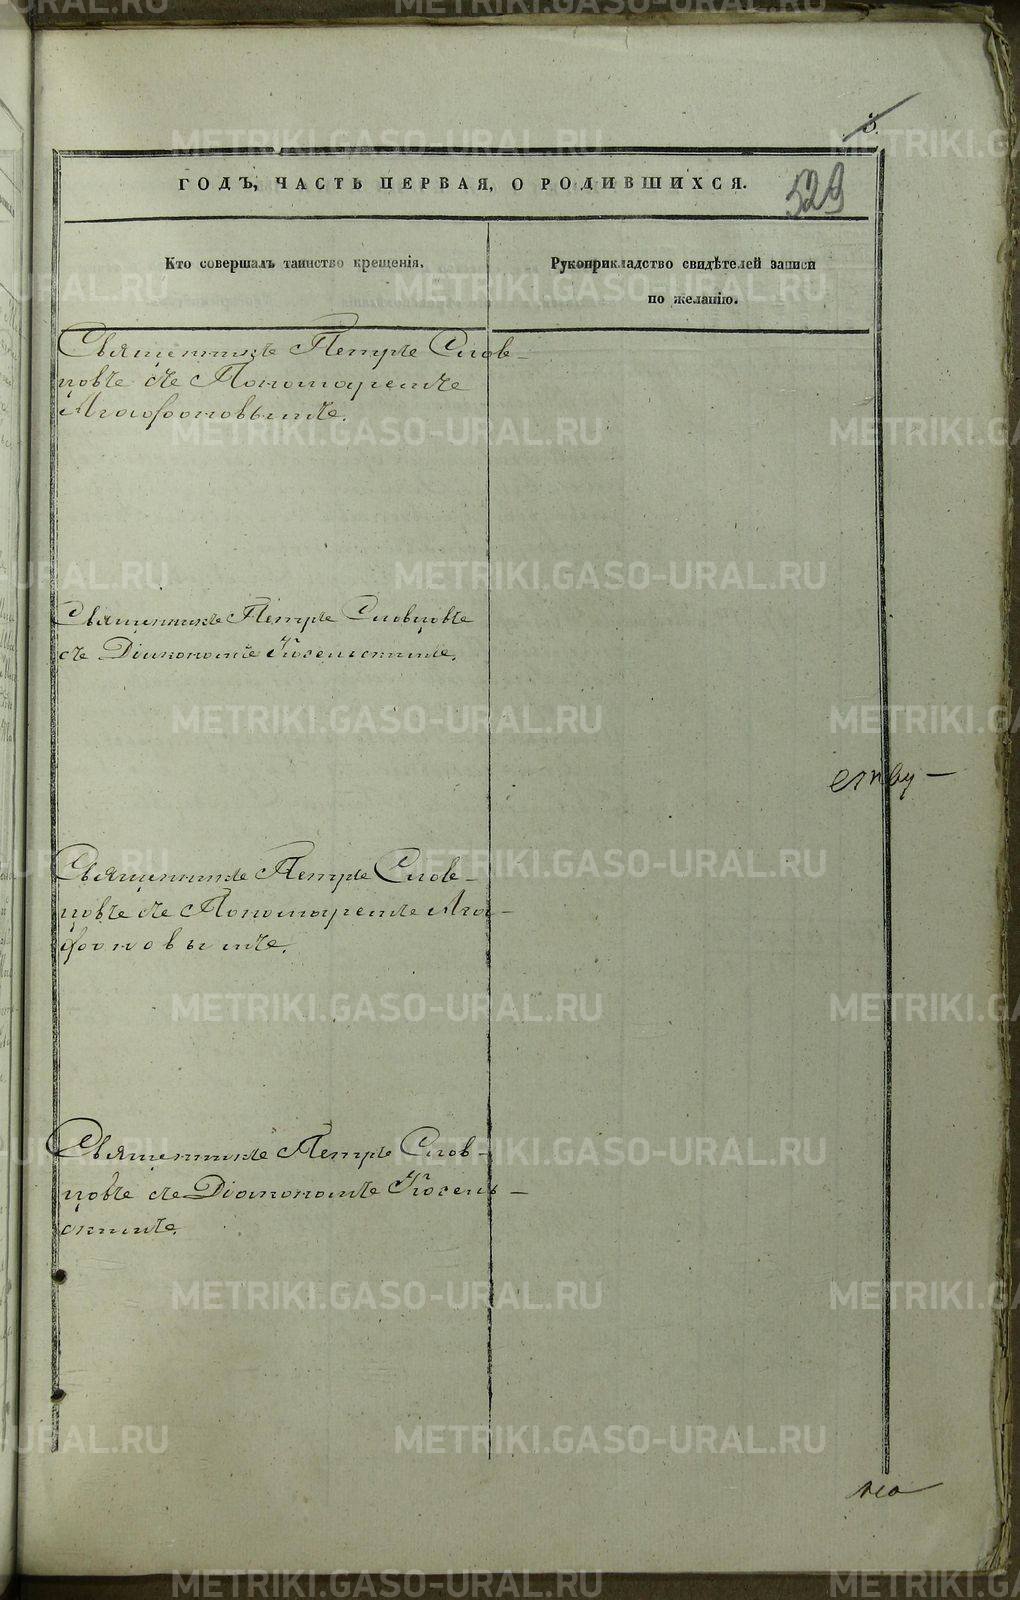 3.
ГОДЪ, ЧАСТЬ ПЕРВАЯ, О РОДИВШИХСЯ.
529
Кто совершалъ таинство крещенія.
Рукоприкладство свидѣтелей записи
по желанію.
Священникъ Петръ Слов-
цовъ съ Пономаремъ
Агафоновымъ.
Священникъ Петръ Словцовъ
съ Діакономъ Косельскимъ.
Священникъ Петръ Слов-
цовъ съ Пономаремъ Ага-
фоновымъ.
Священникъ Петръ Слов-
цовъ съ Діакономъ Косель-
скимъ.
METRIKI.GASO-URAL.RU